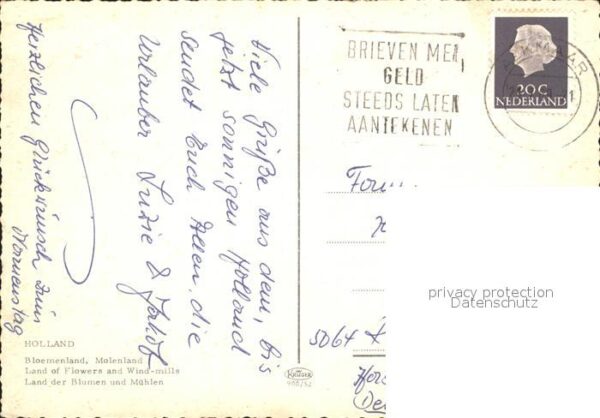 BRIEVEN MET
GELD
STEEDS LATEN
AANTEKENEN
ALKMAAR
20 C
NEDERLAND
Viele Grüße aus dem, bis
jetzt sonnigen Holland
sendet Euch Allen, die
Urlauber Luzie & Jakob
Herzlichen Glückwunsch zum
Namenstag
Fam
5064
privacy protection
Datenschutz
HOLLAND
Bloemenland, Molenland
Land of Flowers and Wind-mills
Land der Blumen und Mühlen
KRÜGER
988/52